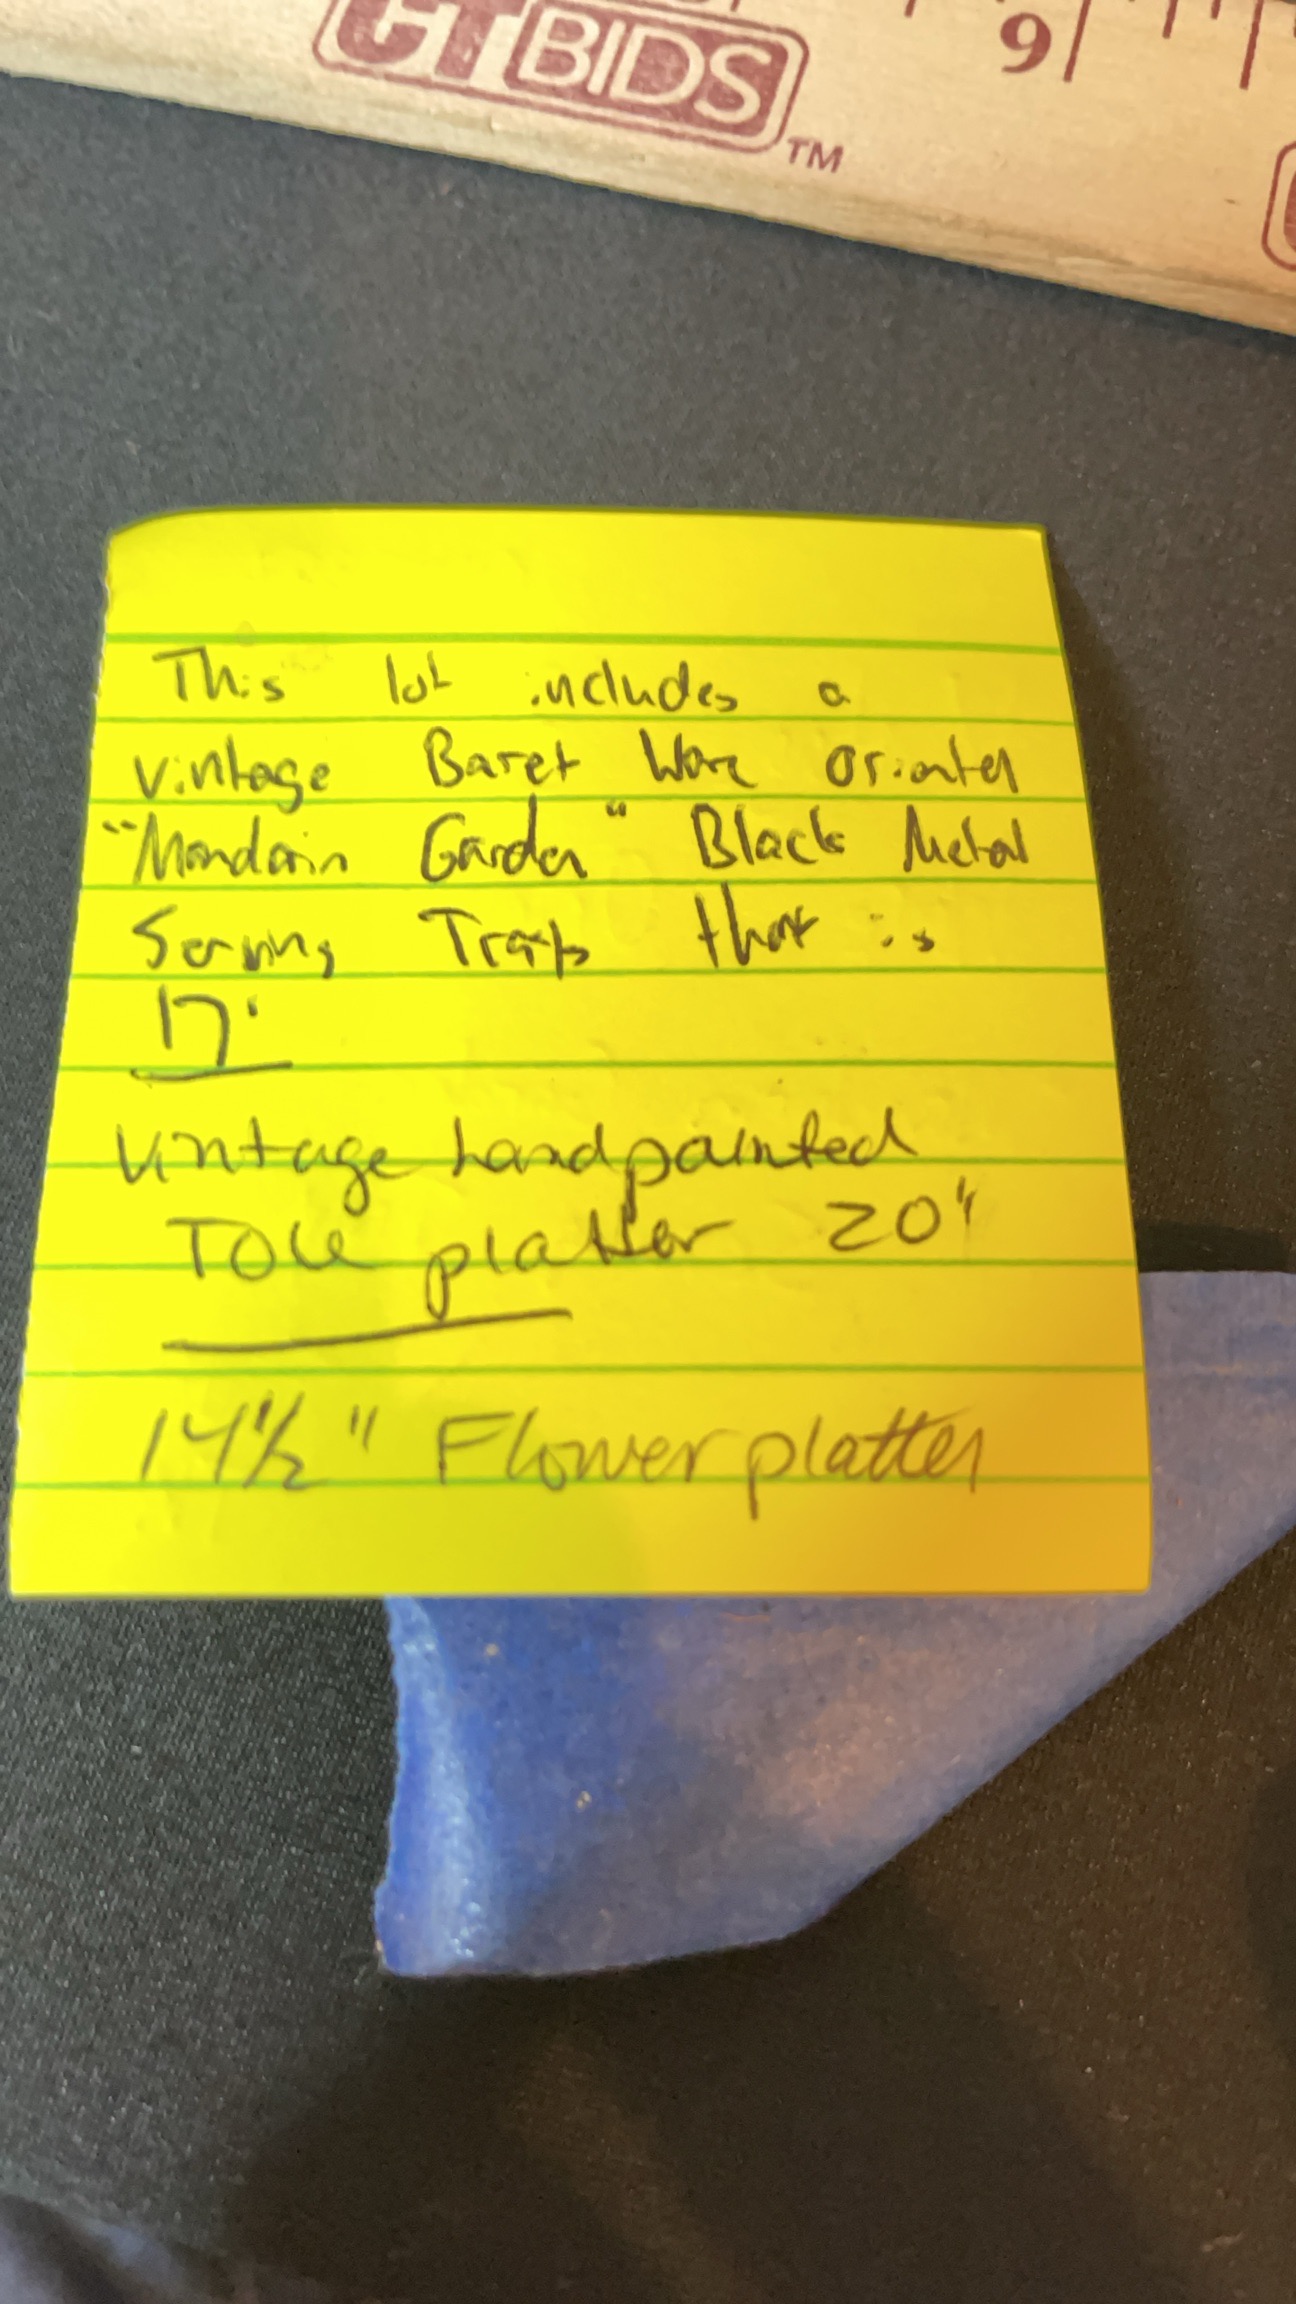 CTBIDS TM
9
This lot includes a
vintage Baret Ware oriental
"Mandarin Garden" Black Metal
Serving Trays that is
17"
Vintage handpainted
TOLE platter 20"
14 1/2" Flower platter